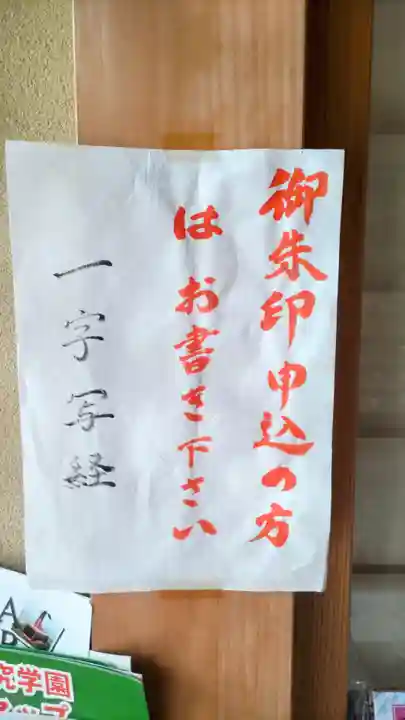 御朱印申込の方
は お書き下さい
一字写経
究学園